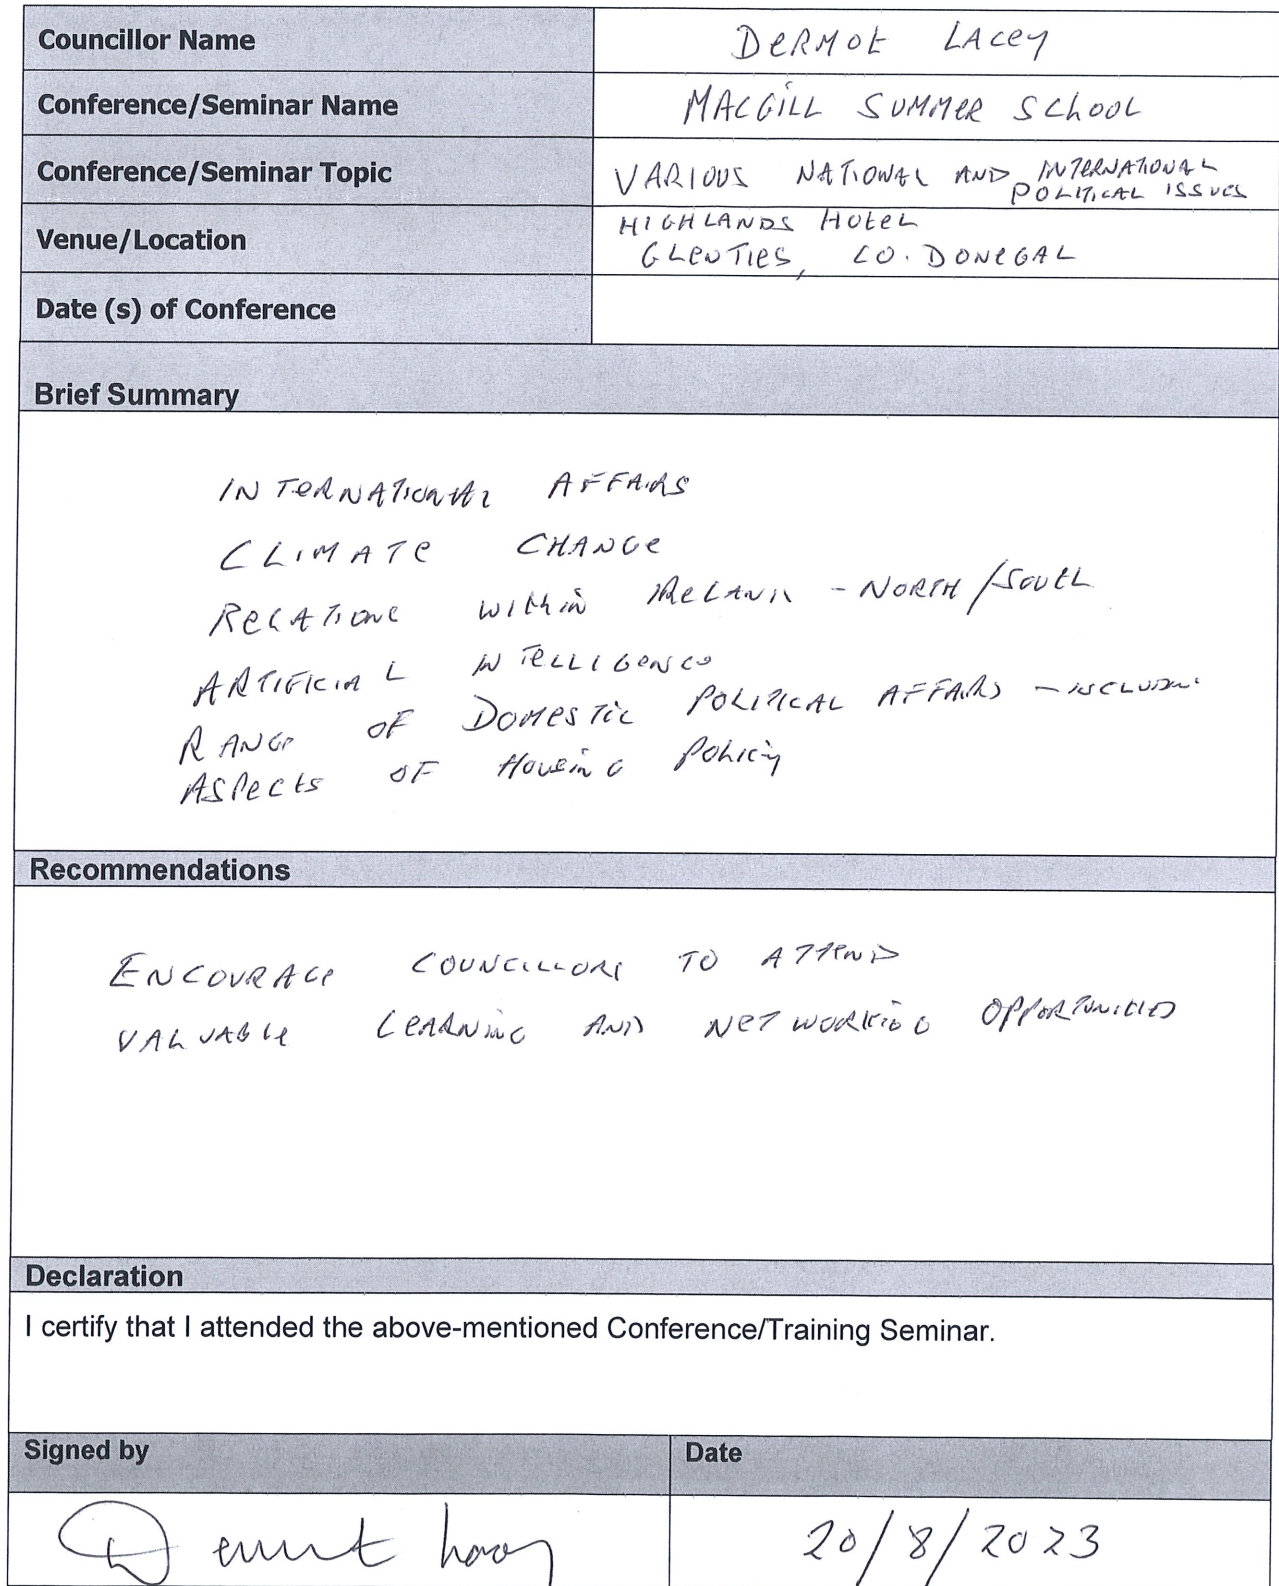 Councillor Name DERMOT LACEY
Conference/Seminar Name MACGILL SUMMER SCHOOL
Conference/Seminar Topic VARIOUS NATIONAL AND INTERNATIONAL
POLITICAL ISSUES
Venue/Location HIGHLANDS HOTEL
GLENTIES, CO. DONEGAL
Date (s) of Conference
Brief Summary
INTERNATIONAL AFFAIRS
CLIMATE CHANGE
RELATIONS WITHIN IRELAND - NORTH/SOUTH
ARTIFICIAL INTELLIGENCE
RANGE OF DOMESTIC POLITICAL AFFAIRS - INCLUDING
ASPECTS OF HOUSING POLICY
Recommendations
ENCOURAGE COUNCILLORS TO ATTEND
VALUABLE LEARNING AND NETWORKING OPPORTUNITIES
Declaration
I certify that I attended the above-mentioned Conference/Training Seminar.
Signed by Date
Dermot Lacey 20/8/2023